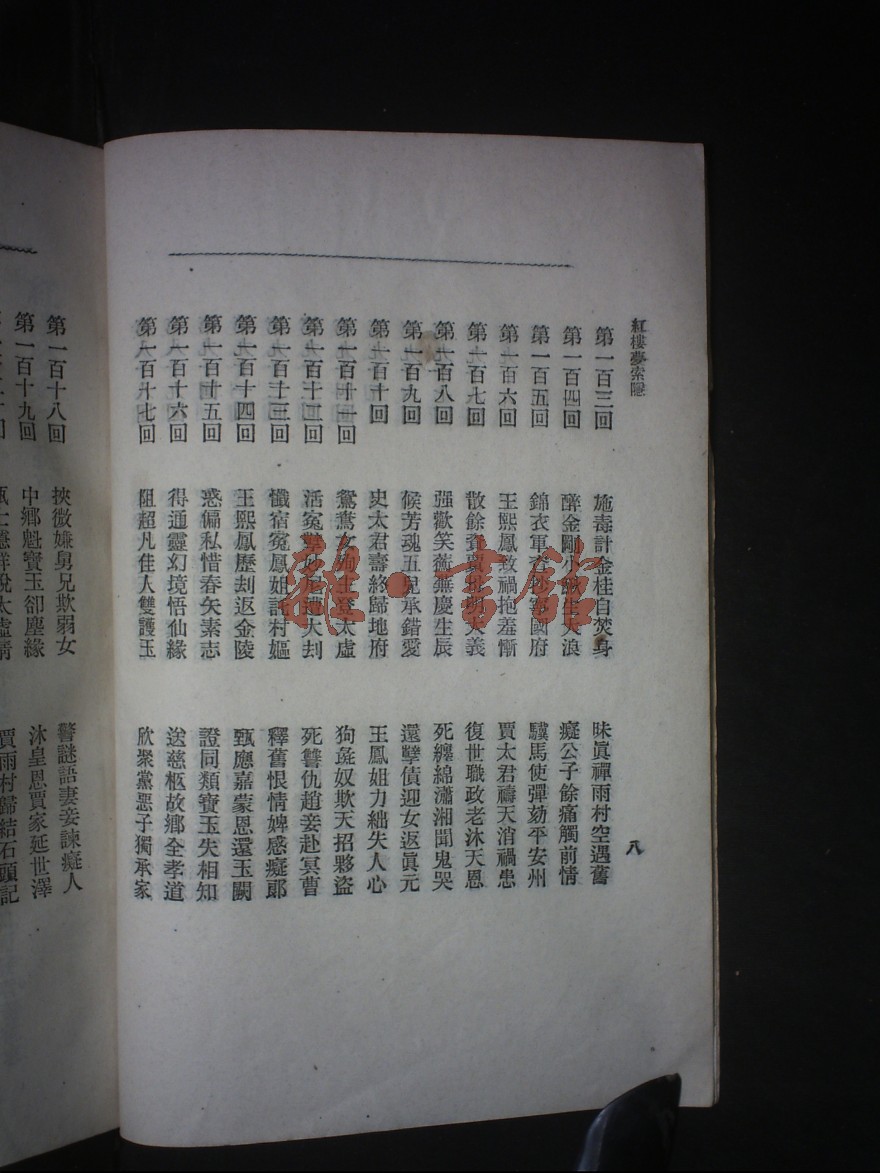 紅樓夢索隱
第一百三回 施毒計金桂自焚身 昧眞禪雨村空遇舊
第一百四回 醉金剛小鰍生大浪 癡公子餘痛觸前情
第一百五回 錦衣軍查抄寧國府 驥馬使彈劾平安州
第一百六回 王熙鳳致禍抱羞慚 賈太君禱天消禍患
第一百七回 散餘資賈母明大義 復世職政老沐天恩
第一百八回 强歡笑蘅蕪慶生辰 死纏綿瀟湘聞鬼哭
第一百九回 候芳魂五兒承錯愛 還孽債迎女返眞元
第一百十回 史太君壽終歸地府 王鳳姐力絀失人心
第一百十一回 鴛鴦女殉主登太虛 狗彘奴欺天招夥盜
第一百十二回 活冤孽妙尼遭大刦 死讐仇趙妾赴冥曹
第一百十三回 懺宿冤鳳姐託村嫗 釋舊恨情婢感癡郞
第一百十四回 王熙鳳歷刦返金陵 甄應嘉蒙恩還玉闕
第一百十五回 惑偏私惜春矢素志 證同類寶玉失相知
第一百十六回 得通靈幻境悟仙緣 送慈柩故鄉全孝道
第一百十七回 阻超凡佳人雙護玉 欣聚黨惡子獨承家
八
第一百十八回 挾微嫌舅兄欺弱女 警謎語妻妾諫癡人
第一百十九回 中鄉魁寶玉卻塵緣 沐皇恩賈家延世澤
賈雨村歸結石頭記
雜·書館